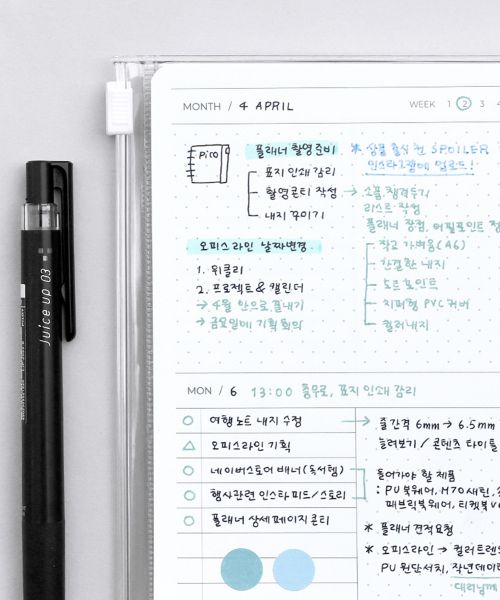 MONTH / 4 APRIL
WEEK 1 2 3 4
Pico
플래너 촬영준비
표지 인쇄 감리
촬영콘티 작성 →
내지 꾸미기
* 상품 출시 전 SPOILER
인스타그램에 업로드!
소품 챙겨두기
리스트 작성
플래너 장점, 어필포인트
작고 가벼움(A6)
간결한 내지
노트 포인트
지퍼형 PVC 커버
컬러내지
오피스라인 날짜변경
1. 위클리
2. 프로젝트 & 캘린더
→ 4월 안으로 끝내기
→ 금요일에 기획회의
Juice up 03
MON / 6 13:00 충무로, 표지 인쇄 감리
여행노트 내지 수정 →
오피스라인 기획
네이버스토어 배너(독서템)
행사관련 인스타 피드/스토리
플래너 상세페이지 콘티
줄간격 6mm → 6.5mm
늘려보기 / 콘텐츠 타이틀
들어가야 할 제품
: PU 북웨어, M70 새틴,
패브릭북웨어, 티켓북
* 플래너 견적요청
* 오피스라인 → 컬러트렌
PU 원단서치, 작년데이터
대리님께